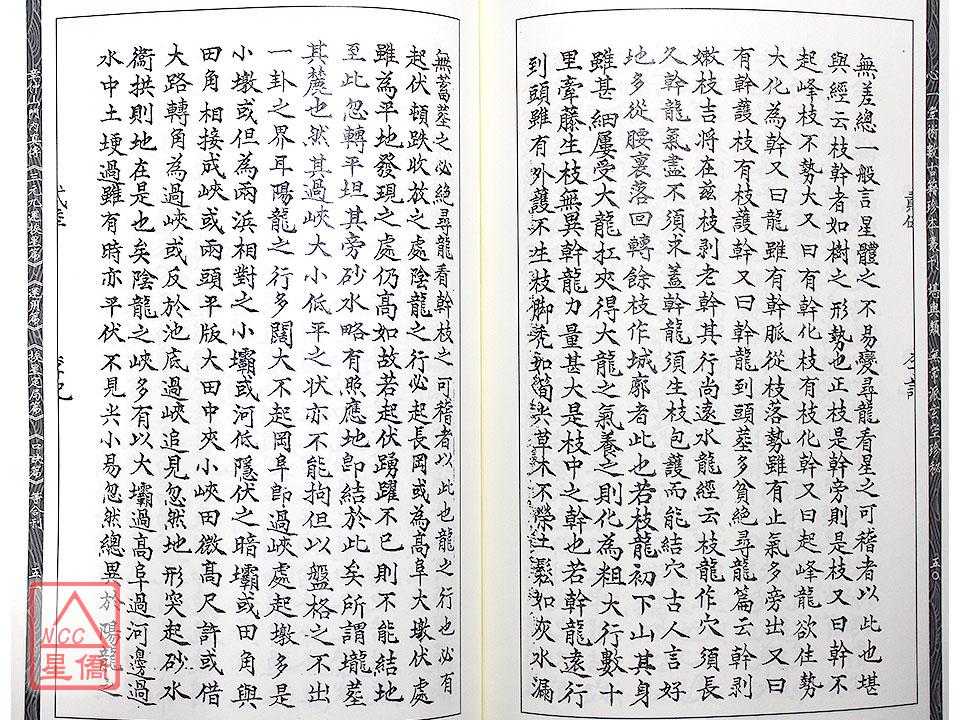 無差總一般言星體之不易變尋龍看星之可稽者以此也堪
與經云枝幹者如樹之形勢也正枝是幹旁則是枝又曰幹不
起峰枝不勢大又曰有幹化枝有枝化幹又曰起峰龍欲住勢
大化為幹又曰龍雖有幹脈從枝落勢雖有止氣多旁出又曰
有幹護枝有枝護幹又曰幹龍到頭塟多貧絕尋龍篇云幹剥
嫩枝吉將在兹枝剥老幹其行尚遠水龍經云枝龍作穴須長
久幹龍氣盡不須求蓋幹龍須生枝包護而能結穴古人言好
地多從腰裏落回轉餘枝作城廓者此也若枝龍初下山其身
雖甚細屢受大龍扛夾得大龍之氣養之則化為粗大行數十
里牽藤生枝無異幹龍力量甚大是枝中之幹也若幹龍遠行
到頭雖有外護不生枝脚禿如筍尖草木不榮土鬆如灰水漏
無蓄塟之必絕尋龍看幹枝之可稽者以此也龍之行也必有
起伏頓跌收放之處陰龍之行必起長岡或為高阜大墩伏處
雖為平地發現之處仍高如故若起伏踴躍不已則不能結地
至此忽轉平坦其旁砂水略有照應地即結於此矣所謂壠塟
其麓也然其過峽大小低平之狀亦不能拘但以盤格之不出
一卦之界耳陽龍之行多闊大不起岡阜即過峽處起墩多是
小墩或但為兩浜相對之小壩或河低隱伏之暗壩或田角與
田角相接成峽或兩頭平版大田中夾小峽田微高尺許或借
大路轉角為過峽或反於池底過峽追見忽然地形突起砂水
衞拱則地在是也矣陰龍之峽多有以大壩過高阜過河邊過
水中土埂過雖有時亦平伏不見尖小易忽然總異於陽龍之
五〇
五
NCC
星僑